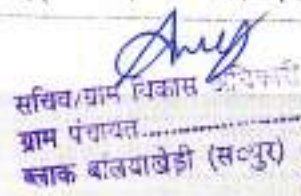 सचिव/ग्राम विकास अधिकारी
ग्राम पंचायत..................
ब्लाक बलियाखेड़ी (स०पुर)